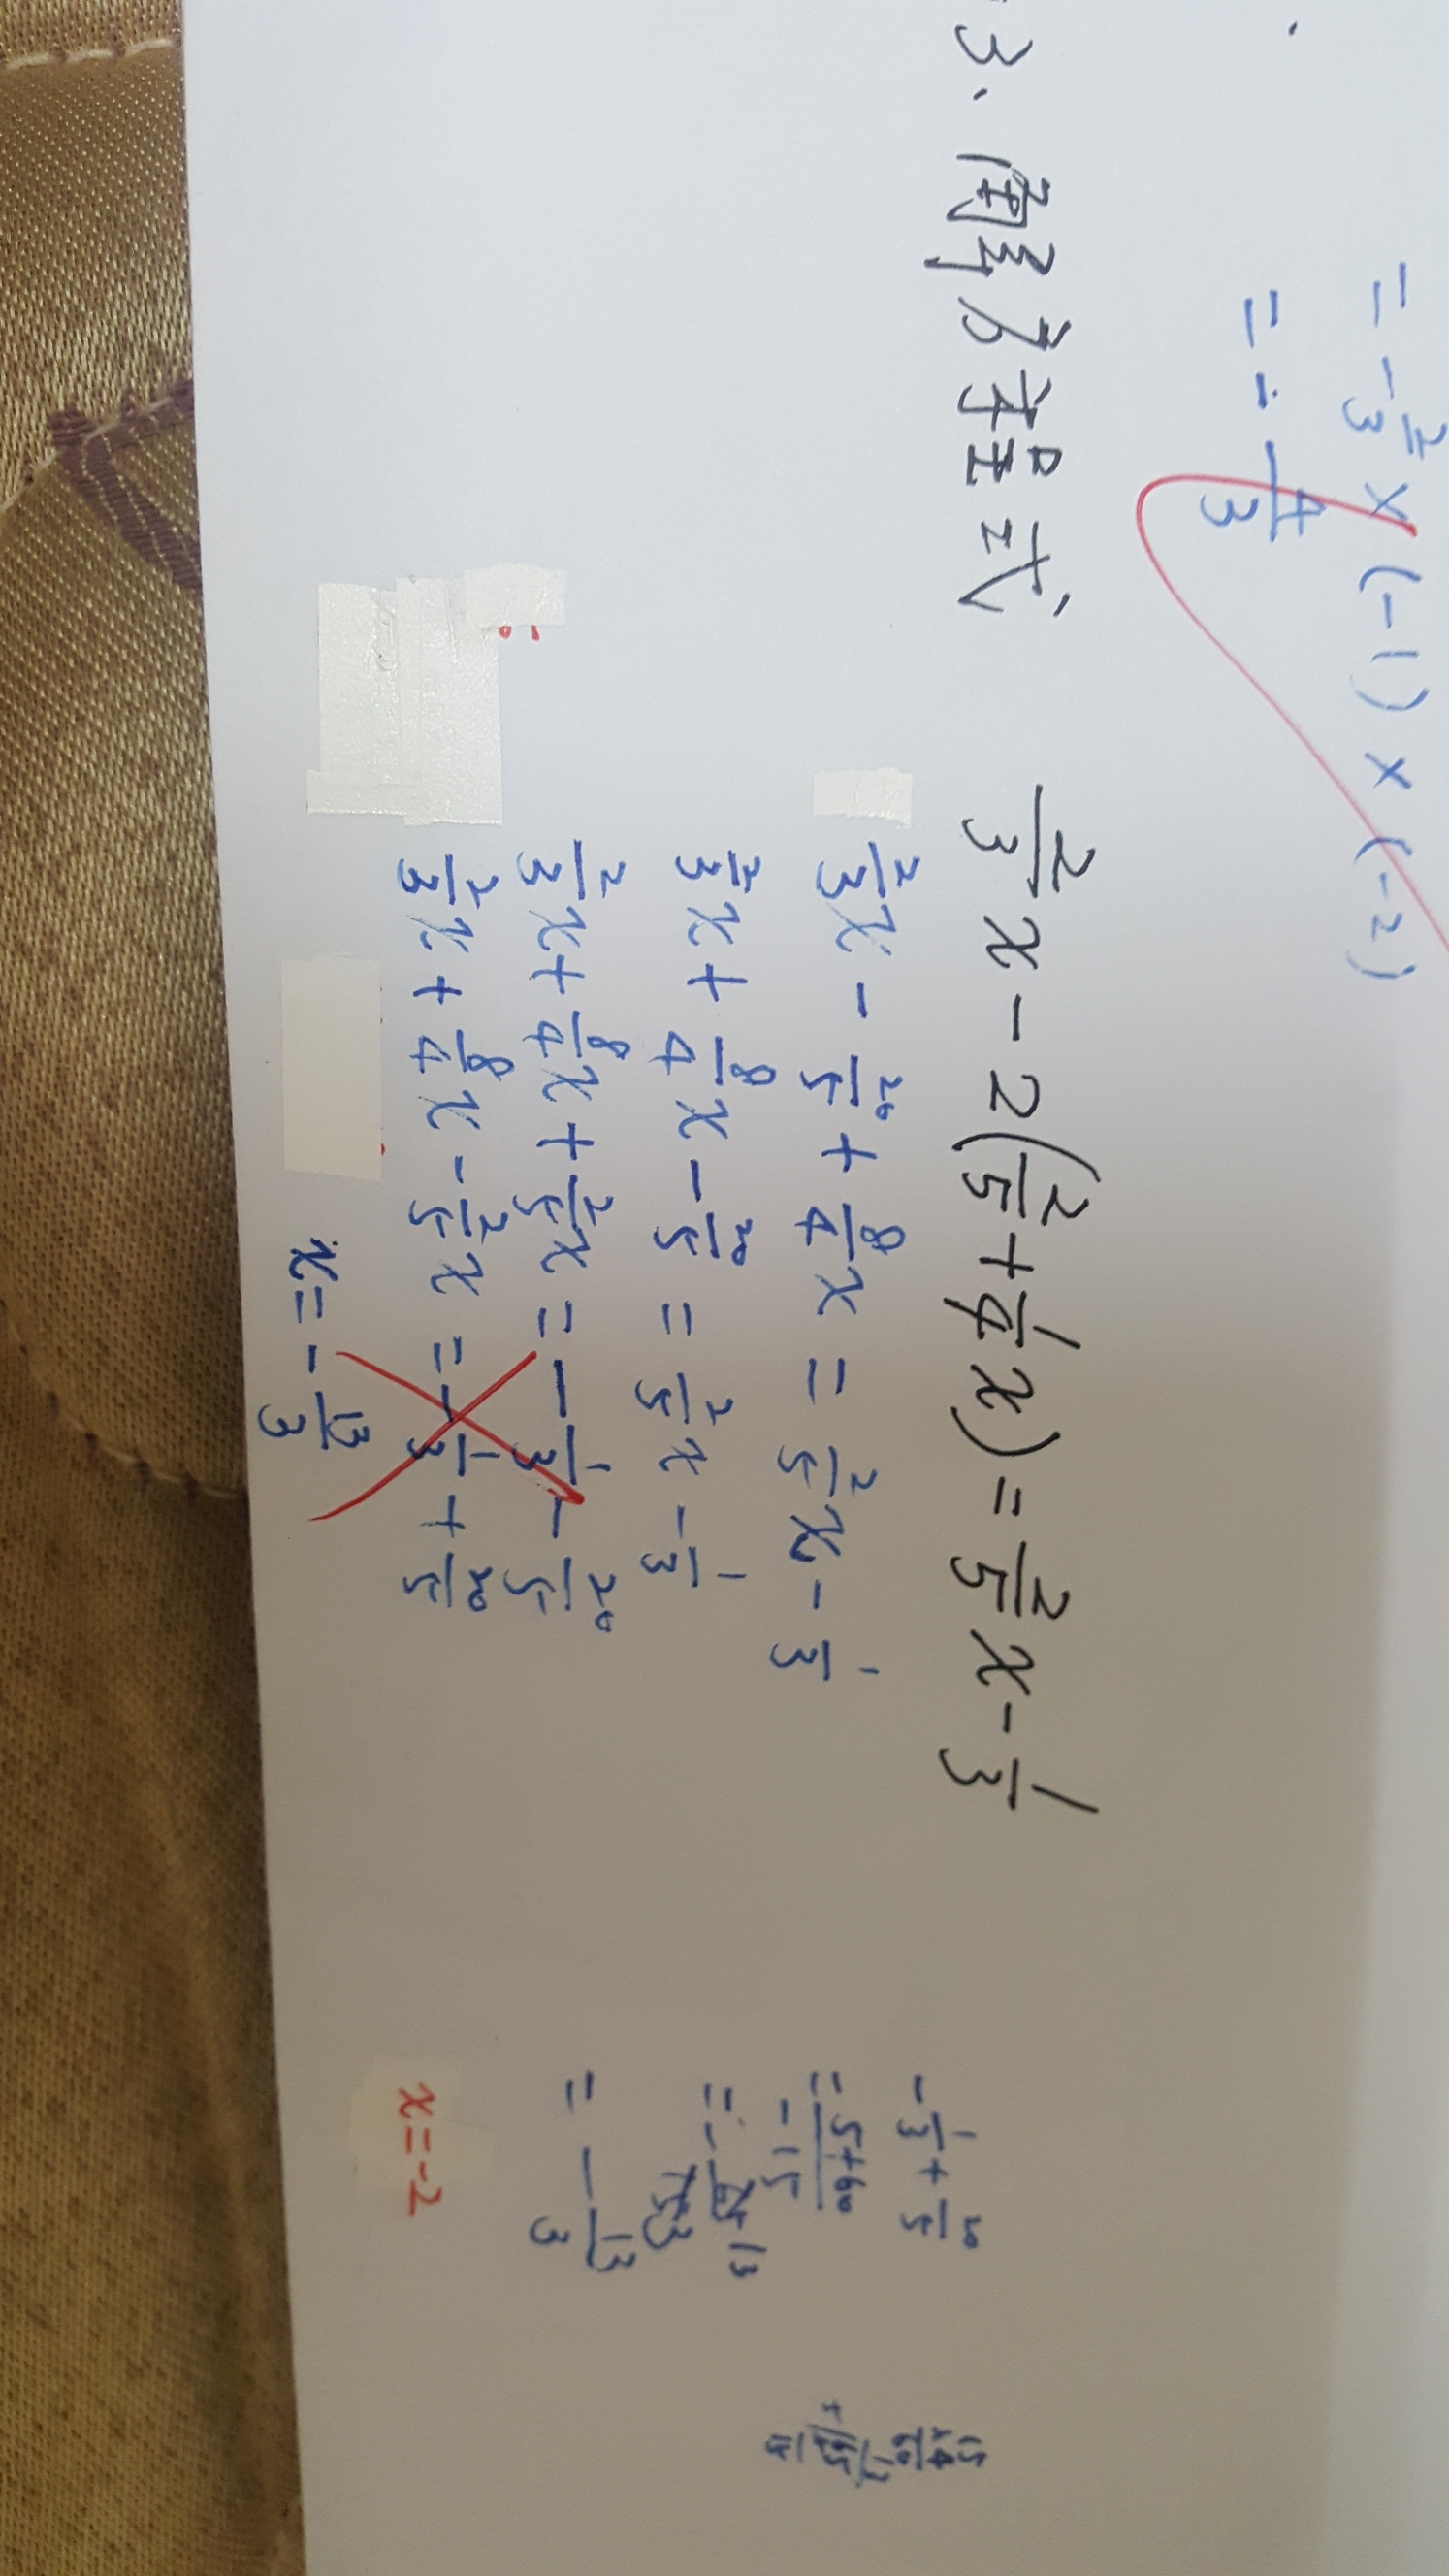 = -2/3 × (-1) × (-2)
= - 4/3
3、解方程式 2/3 x - 2(2/5 + 1/4 x) = 2/5 x - 1/3
2/3 x - 20/5 + 8/4 x = 2/5 x - 1/3
2/3 x + 8/4 x - 20/5 = 2/5 x - 1/3
2/3 x + 8/4 x + 2/5 x = - 1/3 - 20/5
2/3 x + 8/4 x - 2/5 x = - 1/3 + 20/5
x = - 13/3
- 1/3 + 20/5
= 5+60/-15
= -
= - 13/3
x = -2